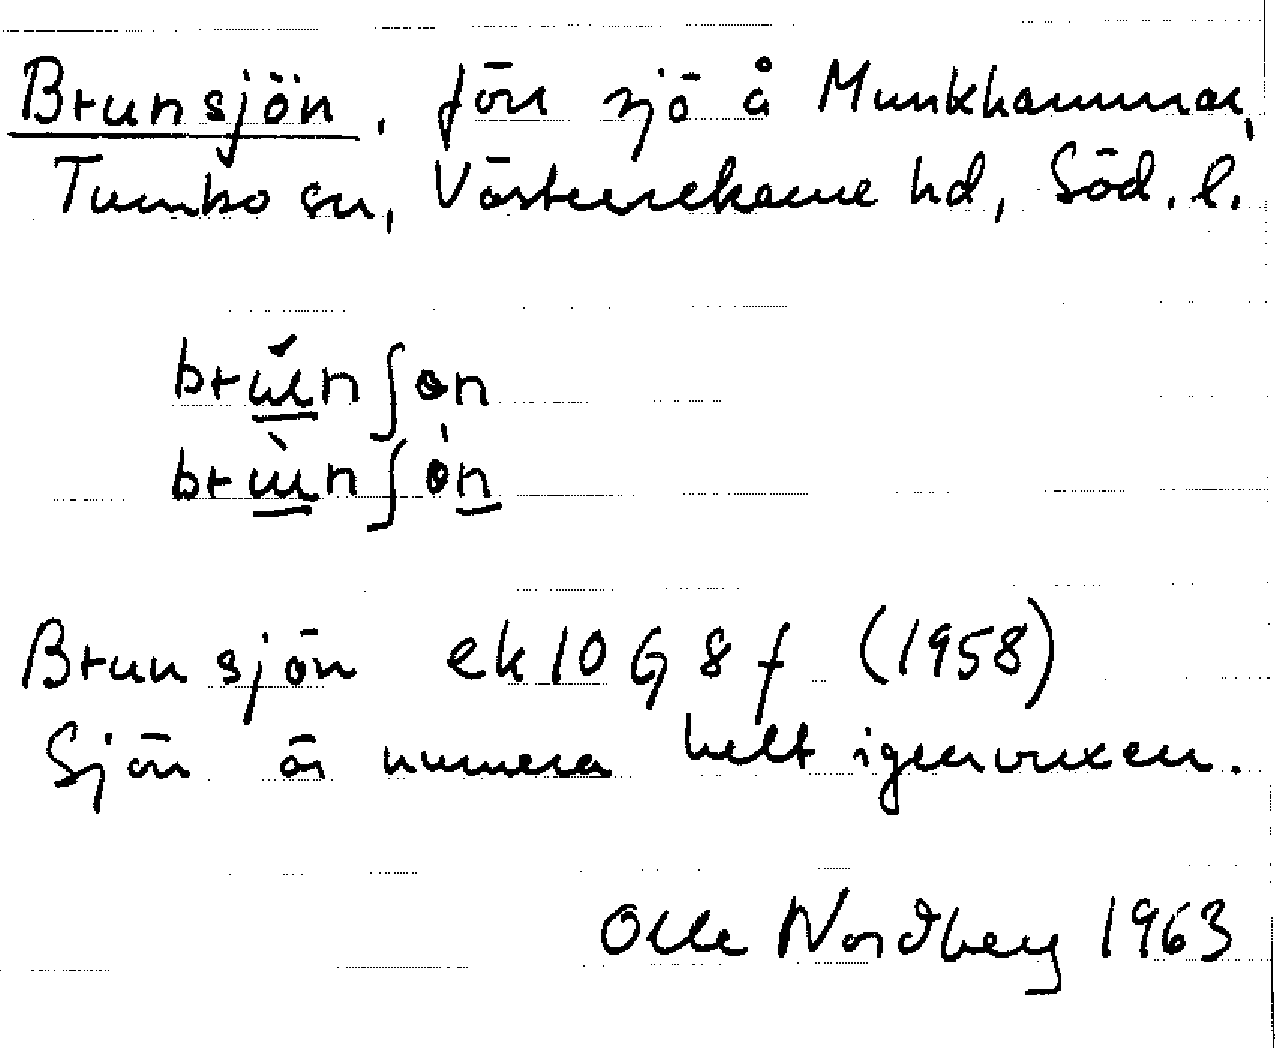 Brunsjön, förr sjö å Munkhammar,
Tumbo sn, Västerrekarne hd, Söd. l.
Brunsjön ek 10 G 8 f (1958)
Sjön är numera helt igenvuxen.
Olle Nordberg 1963